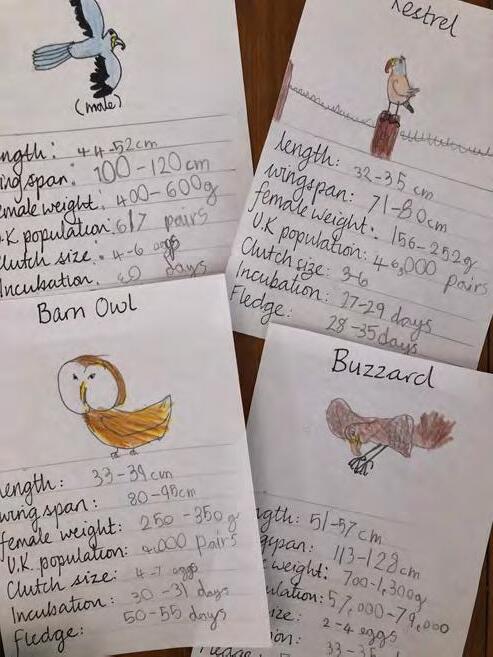 (male)
ngth: 44-52cm
ingspan: 100-120cm
emale weight: 400-600g
.K population: 617 pairs
lutch size: 4-6 eggs
Incubation: days
Kestrel
length: 32-35 cm
wingspan: 71-80cm
female weight: 156-252g
U.K population: 46,000 pairs
Clutch size: 3-6
Incubation: 27-29 days
Fledge: 28-35days
Barn Owl
length: 33-39cm
wing span: 80-95cm
female weight: 250-350g
U.K. population: 4,000 pairs
Clutch size: 4-7 eggs
Incubation: 30-31 days
Fledge: 50-55 days
Buzzard
ngth: 51-57cm
gspan: 113-128cm
e weight: 700-1,300g
ulation: 57,000-79,000
size: 2-4 eggs
on: 33-35